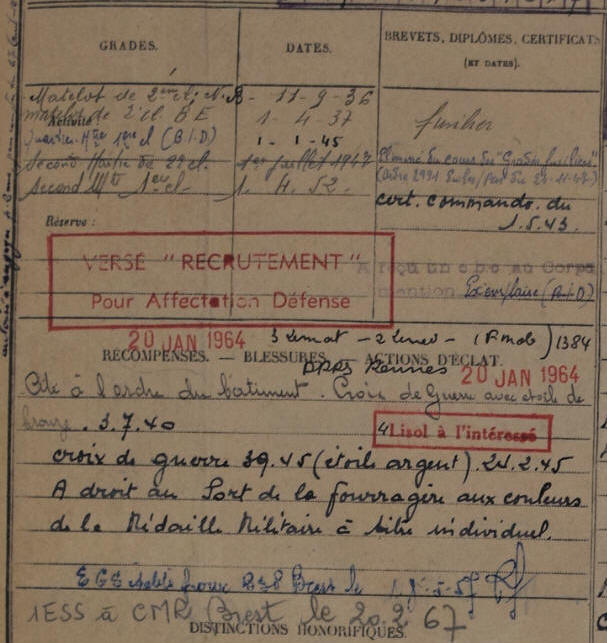 GRADES.
DATES.
BREVETS, DIPLÔMES, CERTIFICATS
(ET DATES).
Matelot de 2ème cl. N.B - 11-9-36
matelot de 2e cl. B E 1 - 4 - 37
Activité
fusilier
Quartier-Mtre 1ère cl (B.I.D) 1 - 1 - 45
Second Maître de 2e cl. 1er juillet 1947
du cours du "Grades fusiliers"
Second Mtre 1ère cl 1. 4. 52.
cert. commando du
1.5.43.
Réserve :
VERSÉ "RECRUTEMENT"
Pour Affectation Défense
A reçu un c b c au Corps
mention Exemplaire (B.I.D)
20 JAN 1964
1384
RÉCOMPENSES. — BLESSURES. — ACTIONS D'ÉCLAT.
Rennes
20 JAN 1964
Cité à l'ordre du bâtiment. Croix de Guerre avec étoile de
bronze. 3.7.40
4 Lisol à l'intéressé
croix de guerre 39.45 (étoile argent). 24.2.45
A droit au Port de la fourragère aux couleurs
de la Médaille Militaire à titre individuel.
EGS Brest le
1ESS à CMR Brest le 20.2.67
DISTINCTIONS HONORIFIQUES.